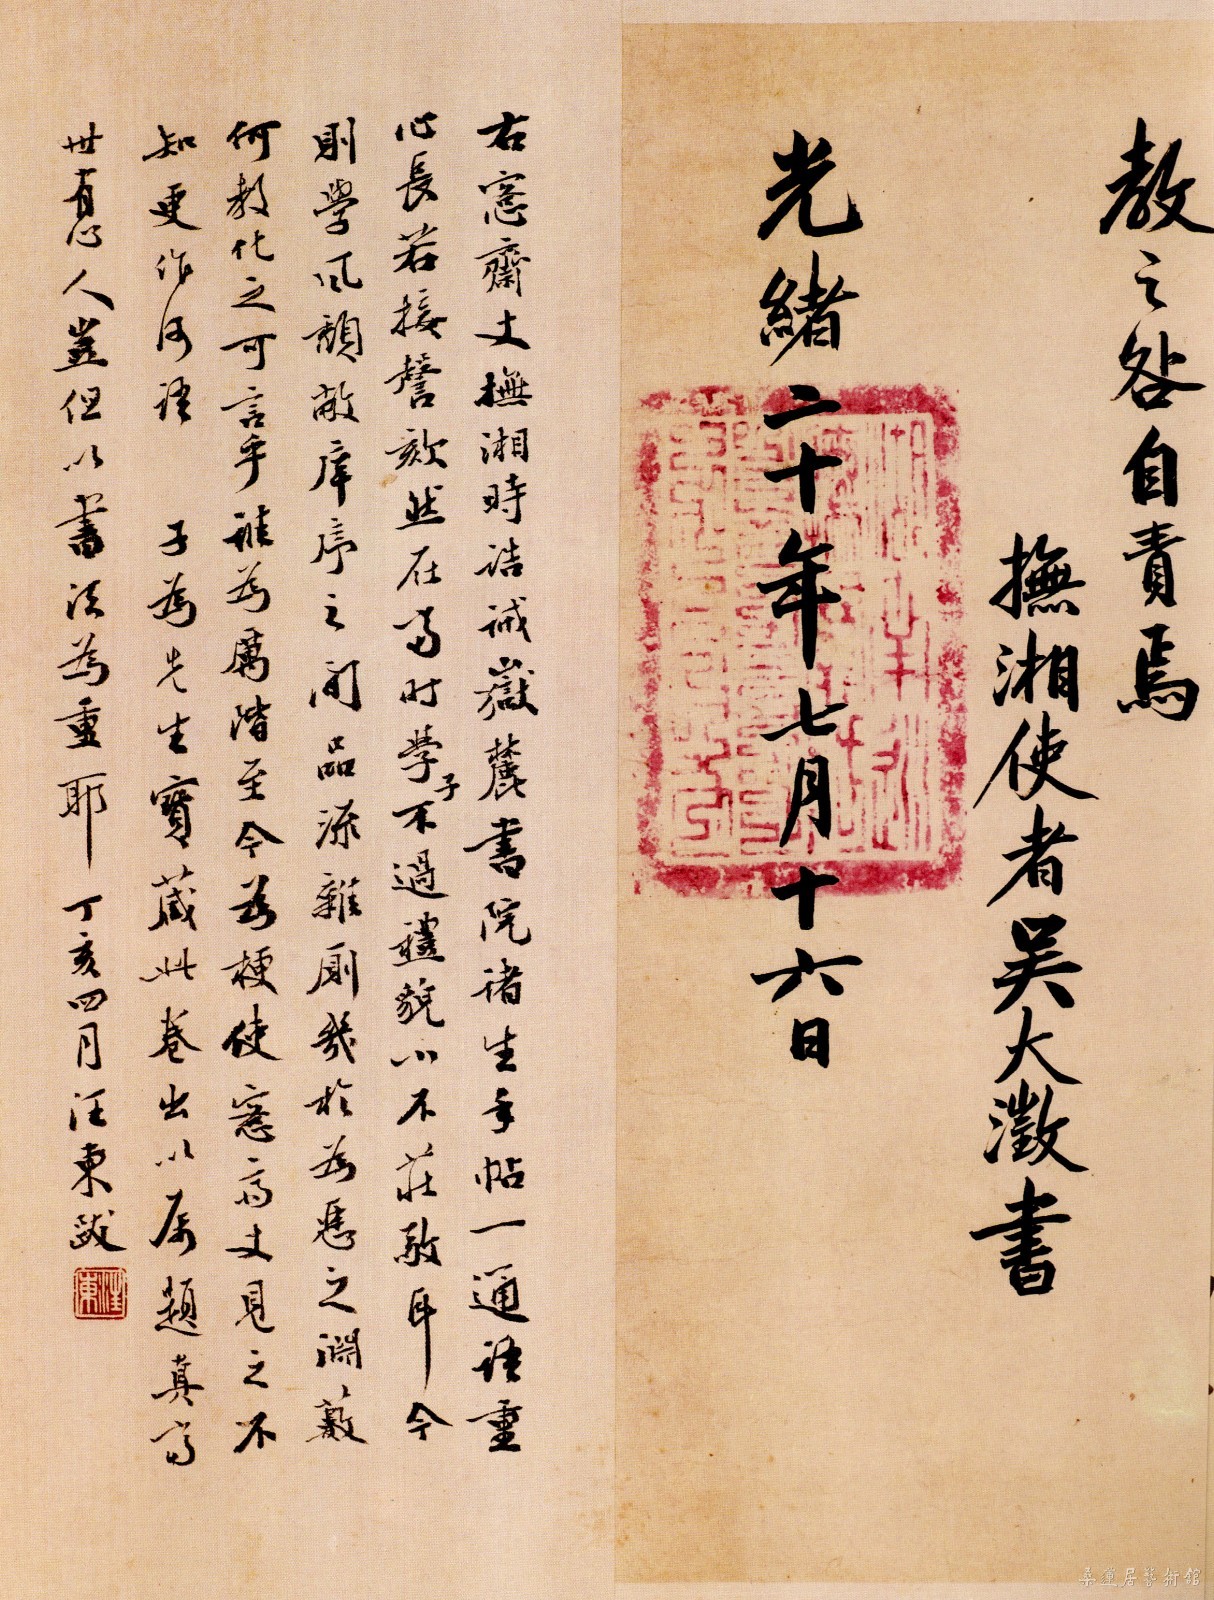 教之咎自責焉
撫湘使者吳大澂書
光緒二十年七月十六日
右愙齋丈撫湘時誥誡嶽麓書院諸生手帖一通語重
心長若接謦欬然在當時學子不過禮貌小不莊敬耳今
則學風頹敝庠序之間品流雜厠幾於為惡之淵藪
何教化之可言乎誰為厲階至今為梗使愙齋丈見之不
知更作何語 子為先生寶藏此卷出以屬題真當
世有心人豈但以書法為重耶 丁亥四月汪東跋
汪東
桑蓮居藝術館